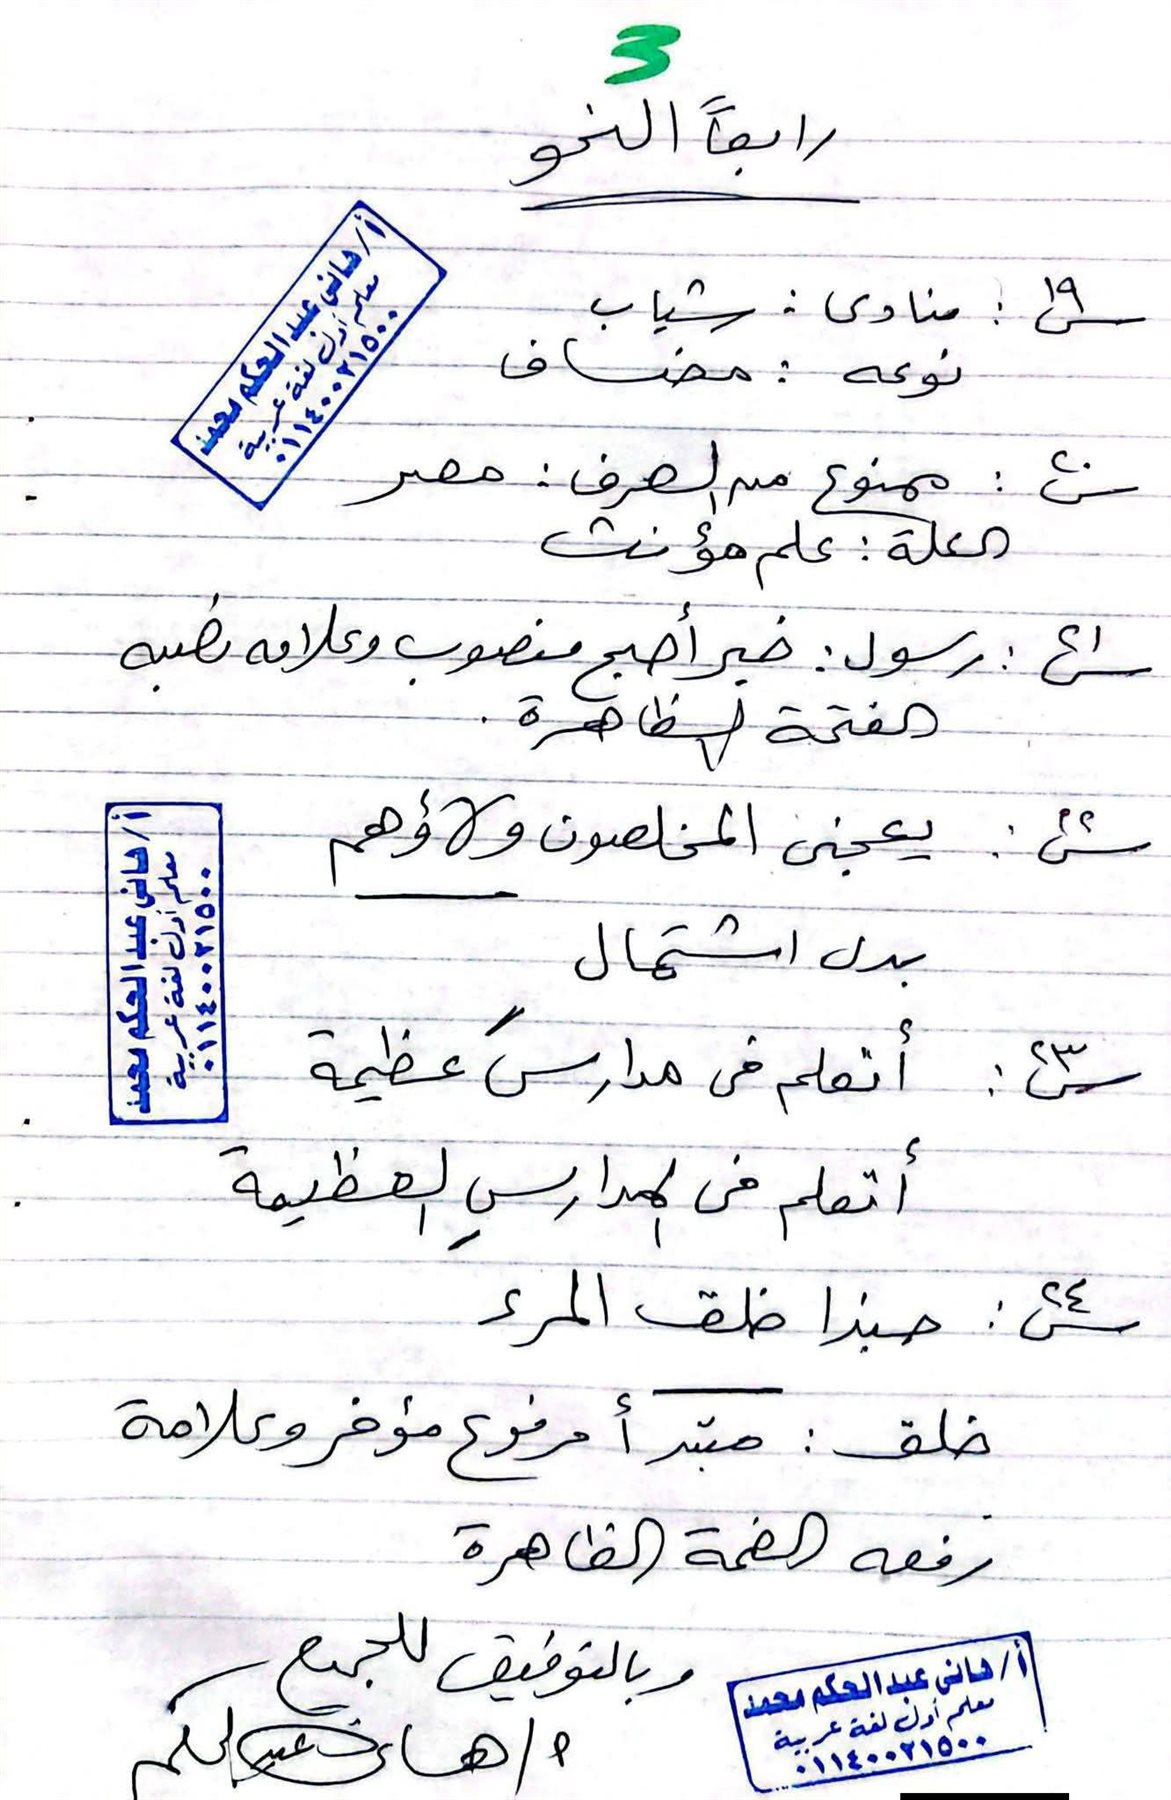 3
رابعاً النحو
س١٩: منادى: شباب
نوعه: مضاف
أ/هانى عبد الحكم محمد
معلم أول لغة عربية
٠١١٤٠٠٢١٥٠٠
س٢٠: ممنوع من الصرف: مصر
العلة: علم مؤنث
س٢١: رسول: خبر أصبح منصوب وعلامه نصبه
الفتحة الظاهرة.
س٢٢: يعجبنى المخلصون ولاؤهم
بدل اشتمال
أ/هانى عبد الحكم محمد
معلم أول لغة عربية
٠١١٤٠٠٢١٥٠٠
س٢٣: أتعلم فى مدارسَ عظيمة
أتعلم فى المدارسِ العظيمة
س٢٤: حبذا خلق المرء
خلق: مبتدأ مرفوع مؤخر وعلامة
رفعه الضمة الظاهرة
وبالتوفيق للجميع
أ/هانى عبد الحكم
أ/هانى عبد الحكم محمد
معلم أول لغة عربية
٠١١٤٠٠٢١٥٠٠